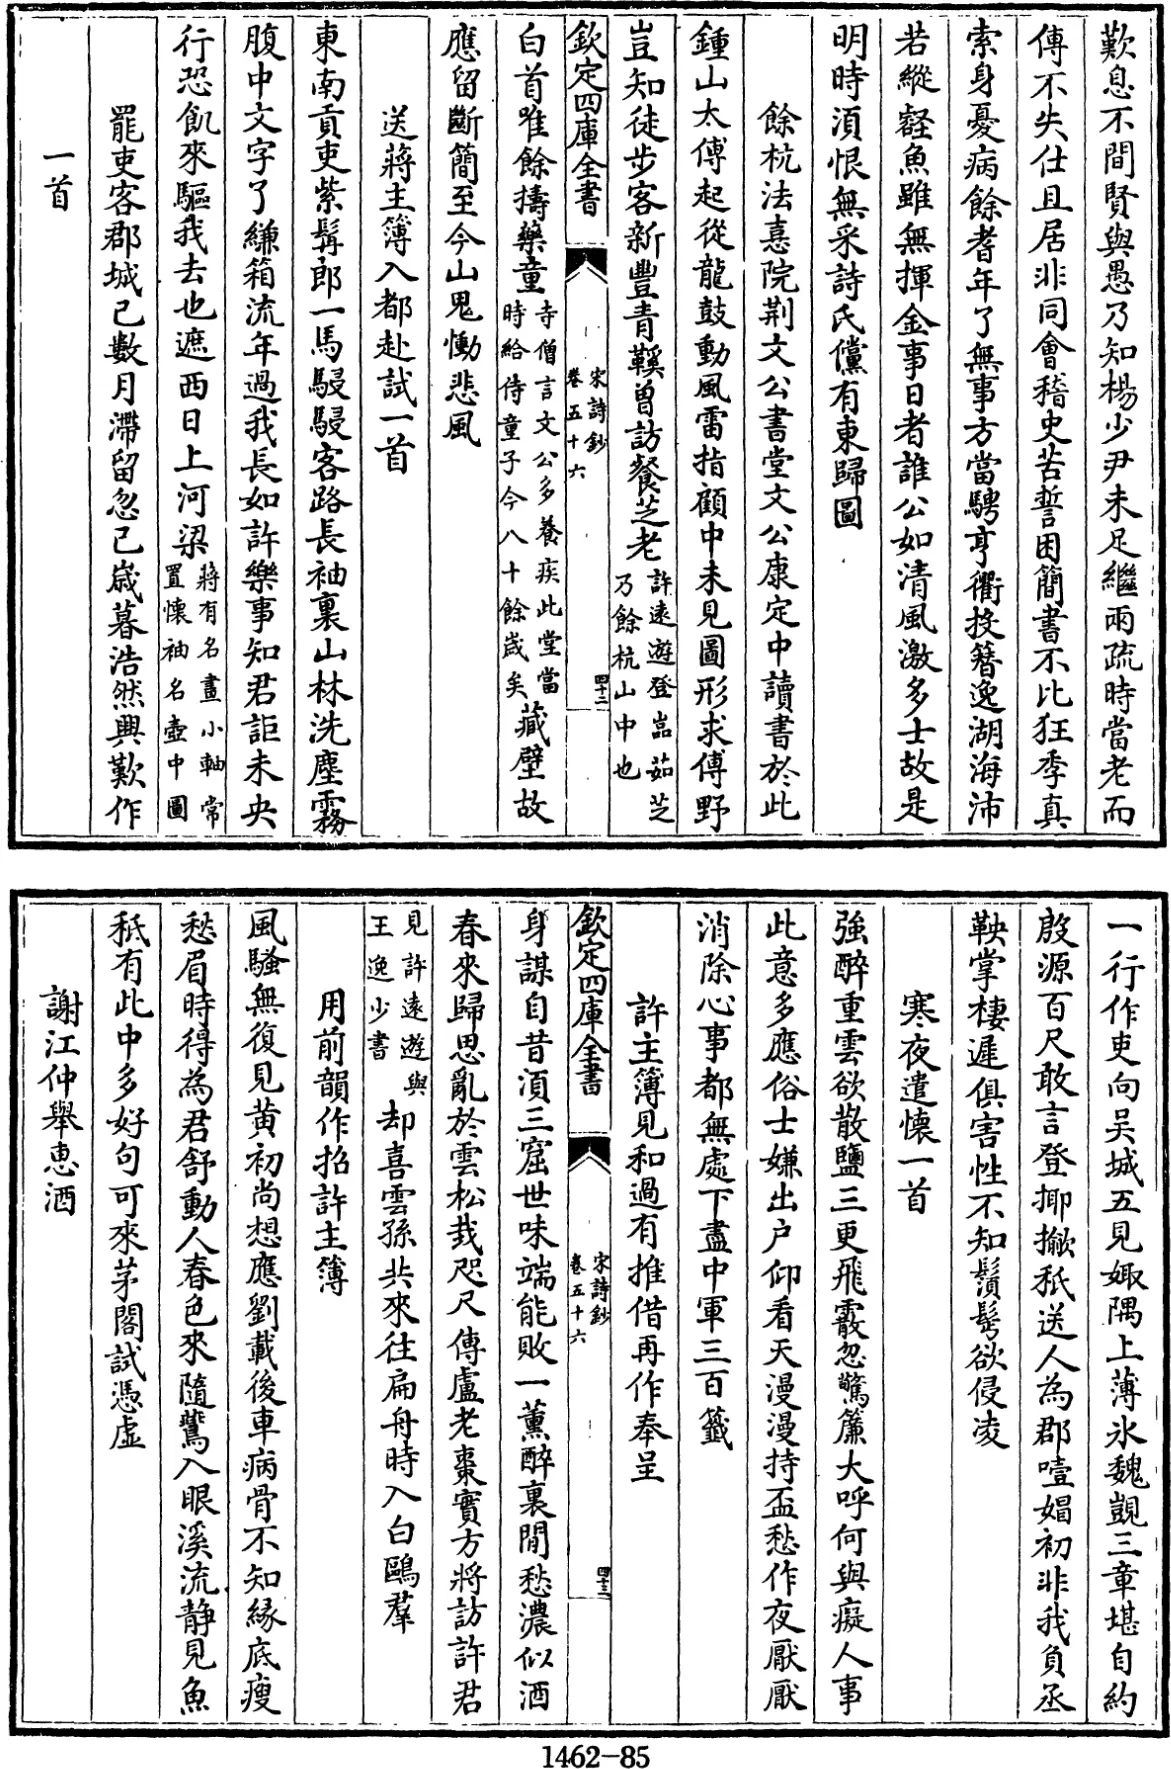 歎息不間賢與愚乃知楊少尹未足繼兩疏時當老而
傳不失仕且居非同會稽史苦誓困簡書不比狂季真
索身憂病餘耆年了無事方當騁亨衢投簪逸湖海沛
若縱壑魚雖無揮金事日者誰公如清風激多士故是
明時湏恨無采詩氏儻有東歸圖
餘杭法憙院荆文公書堂文公康定中讀書於此
鍾山太傅起從龍鼓動風雷指顧中未見圖形求傅野
豈知徒步客新豐青鞵曽訪餐芝老許遠遊登嵓茹芝乃餘杭山中也
欽定四庫全書
宋詩鈔
卷五十六
四十二
白首唯餘擣藥童寺僧言文公多養疾此堂當時給侍童子今八十餘歲矣藏壁故
應留斷簡至今山鬼慟悲風
送蔣主簿入都赴試一首
東南貢吏紫髯郎一馬駸駸客路長袖裏山林洗塵霧
腹中文字了縑箱流年過我長如許樂事知君詎未央
行恐飢來驅我去也遮西日上河梁蔣有名畫小軸常置懷袖名壺中圖
罷吏客郡城已數月滯留忽已歲暮浩然興歎作
一首
一行作吏向吴城五見娵隅上薄氷魏覬三章堪自約
殷源百尺敢言登揶撖秖送人為郡噎媢初非我負丞
鞅掌棲遲俱害性不知鬚髩欲侵凌
寒夜遣懷一首
強醉重雲欲散鹽三更飛霰忽驚簾大呼何與癡人事
此意多應俗士嫌出户仰看天漫漫持盃愁作夜厭厭
消除心事都無處下盡中軍三百籤
許主簿見和過有推借再作奉呈
身謀自昔湏三窟世味端能敗一薰醉裏閒愁濃似酒
春來歸思亂於雲松栽咫尺傳盧老棗實方將訪許君
見許遠遊與王逸少書却喜雲孫共來往扁舟時入白鷗羣
欽定四庫全書
宋詩鈔
卷五十六
四十三
用前韻作招許主簿
風騷無復見黄初尚想應劉載後車病骨不知緣底瘦
愁眉時得為君舒動人春色來隨鷺入眼溪流靜見魚
秖有此中多好句可來茅閣試憑虛
謝江仲舉惠酒
1462-85